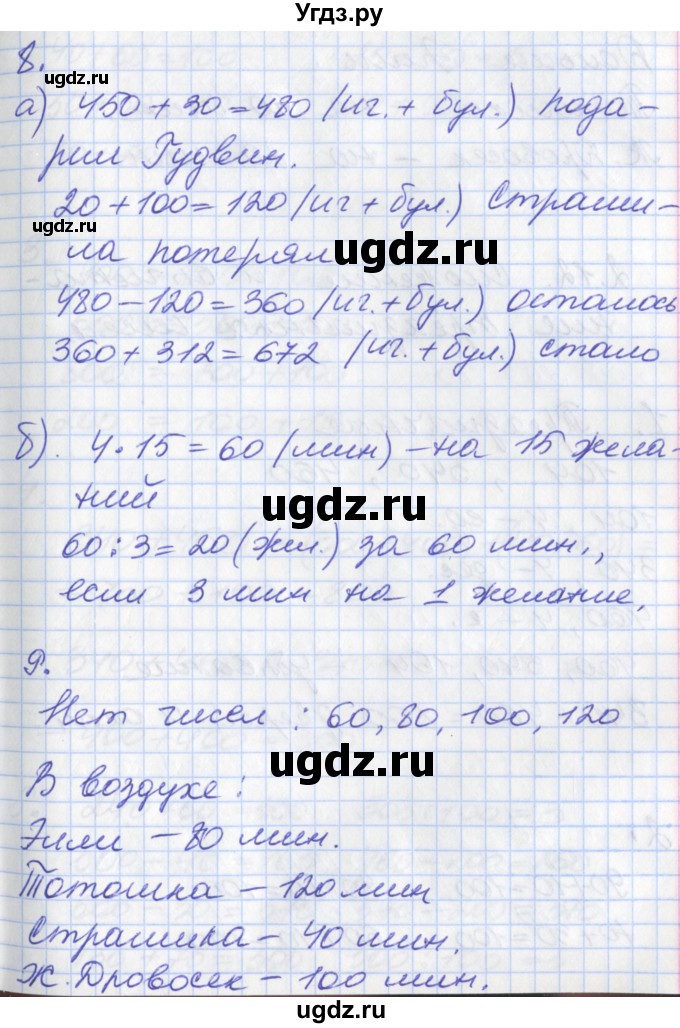 Угдз.ру
8.
ugdz.ru
а) 450 + 30 = 480 (иг. + бул.) пода-
рил Гудвин.
20 + 100 = 120 (иг + бул.) Страши-
ла потерял
ugdz.ru
480 - 120 = 360 (иг. + бул.) осталось
360 + 312 = 672 (иг. + бул.) стало
ugdz.ru
б). 4 · 15 = 60 (мин) - на 15 жела-
ний
ugdz.ru
60 : 3 = 20 (жел.) за 60 мин.,
если 3 мин на 1 желание.
ugdz.ru
9.
Нет чисел : 60, 80, 100, 120
ugdz.ru
В воздухе :
Элли - 80 мин.
Тотошка - 120 мин
ugdz.ru
Страшила - 40 мин.
Ж. Дровосек - 100 мин.
ugdz.ru